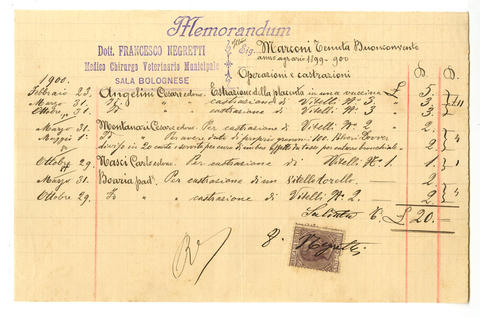 Memorandum
Dott. FRANCESCO NEGRETTI
Medico Chirurgo Veterinario Municipale
SALA BOLOGNESE
Sig. Marconi Tenuta Buonconvento
anno agrario 1899-900
Operazioni e castrazioni
1900.
Febbraio 23. Angelini Cesare colono. Estrazione della placenta in una vaccina £ 5.
Marzo 31. Id. " castrazione di Vitelli N° 3. " 3.
Ottobre 31. " castrazione di Vitelli N° 3 " 3. 11
Marzo 31. Montanari Cesare colono. Per castrazione di Vitelli N° 2. 2.
Maggio 1° Id. Per avere dato di proprio grammi 100.
diviso in 20 cartine per cura di un bue affetto da tosse, per catarro bronchiale 2. 4
Ottobre 29. Nasci colono. Per castrazione di Vitelli N° 1. 1. 1
Marzo 31. Boaria pad. Per castrazione di un Vitello torello. 2.
Ottobre 29. Id. " castrazione di Vitelli N° 2. 2. 4
£ 20.
Negretti